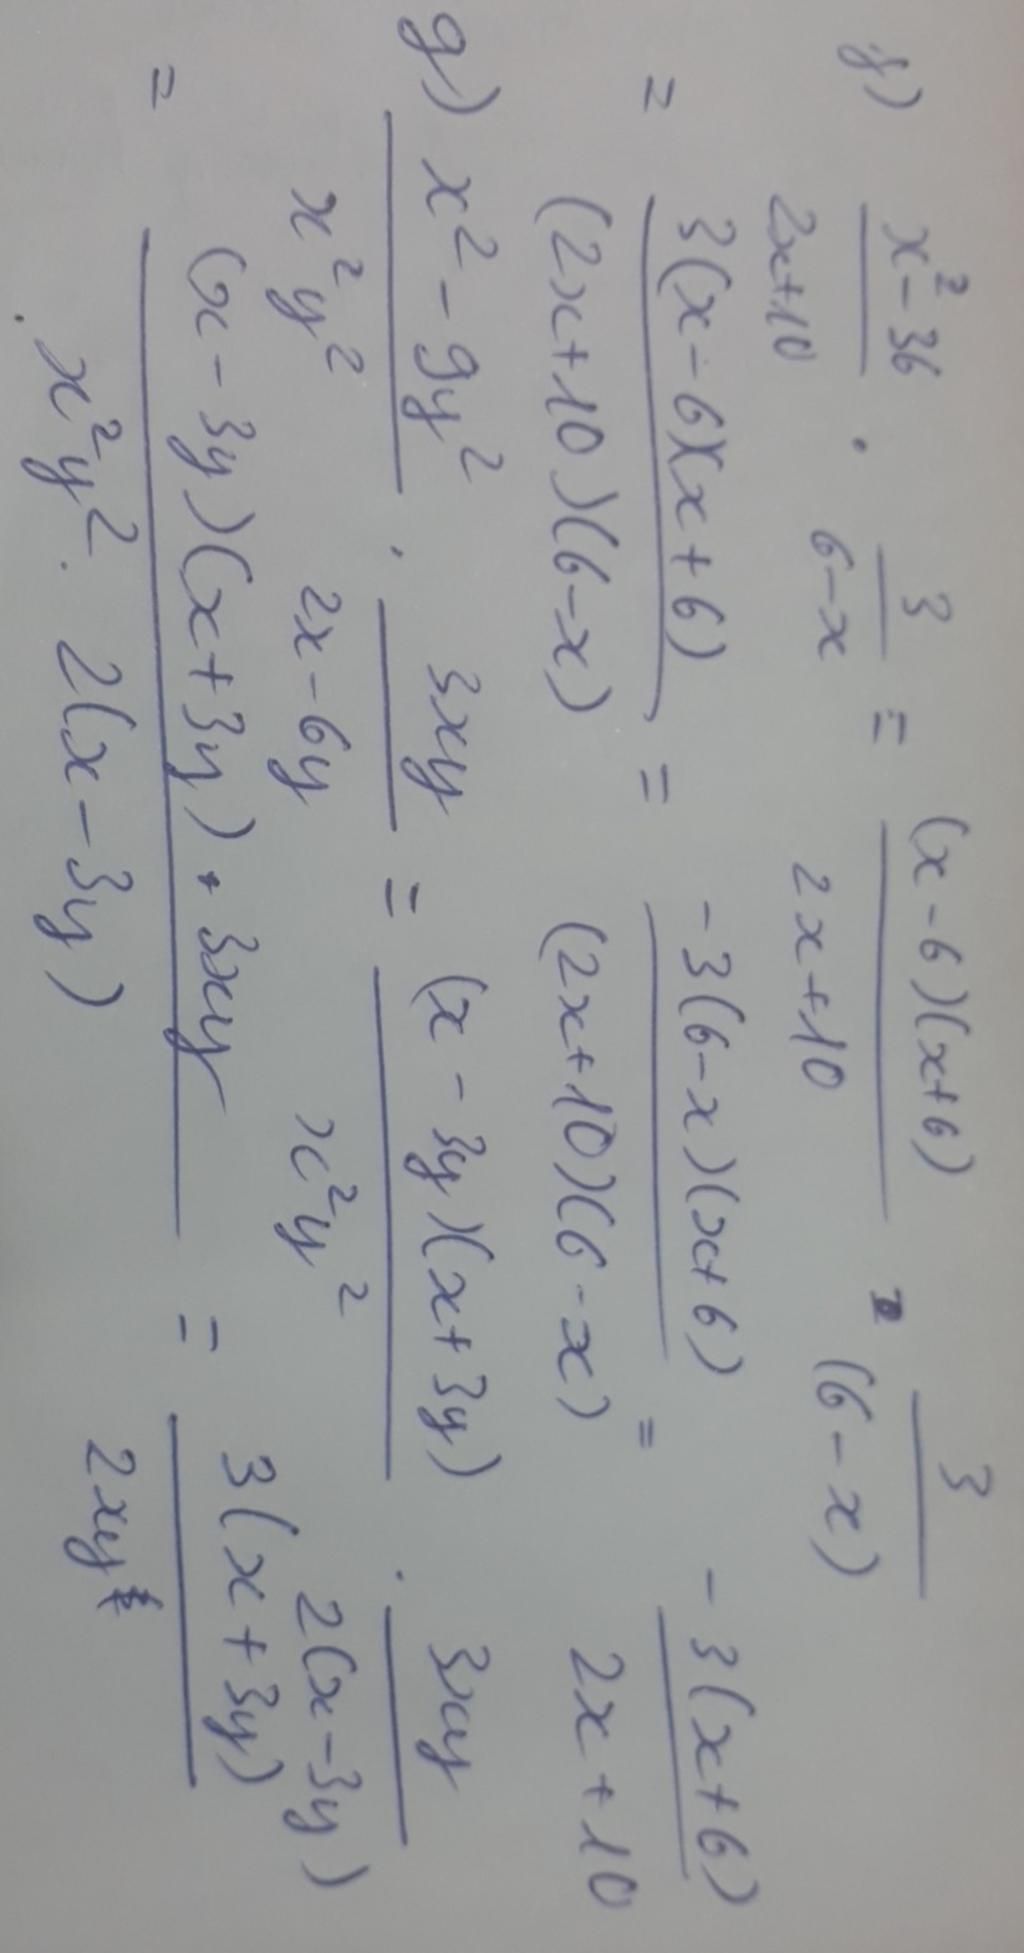 f) \frac{x^2-36}{2x+10} \cdot \frac{3}{6-x} = \frac{(x-6)(x+6)}{2x+10} \cdot \frac{3}{(6-x)}
= \frac{3(x-6)(x+6)}{(2x+10)(6-x)} = \frac{-3(6-x)(x+6)}{(2x+10)(6-x)} = \frac{-3(x+6)}{2x+10}
g) \frac{x^2-9y^2}{x^2y^2} \cdot \frac{3xy}{2x-6y} = \frac{(x-3y)(x+3y)}{x^2y^2} \cdot \frac{3xy}{2(x-3y)}
= \frac{(x-3y)(x+3y) \cdot 3xy}{x^2y^2 \cdot 2(x-3y)} = \frac{3(x+3y)}{2xy}